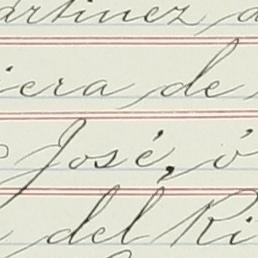 artinez a
iera de
José, ó
del Ri